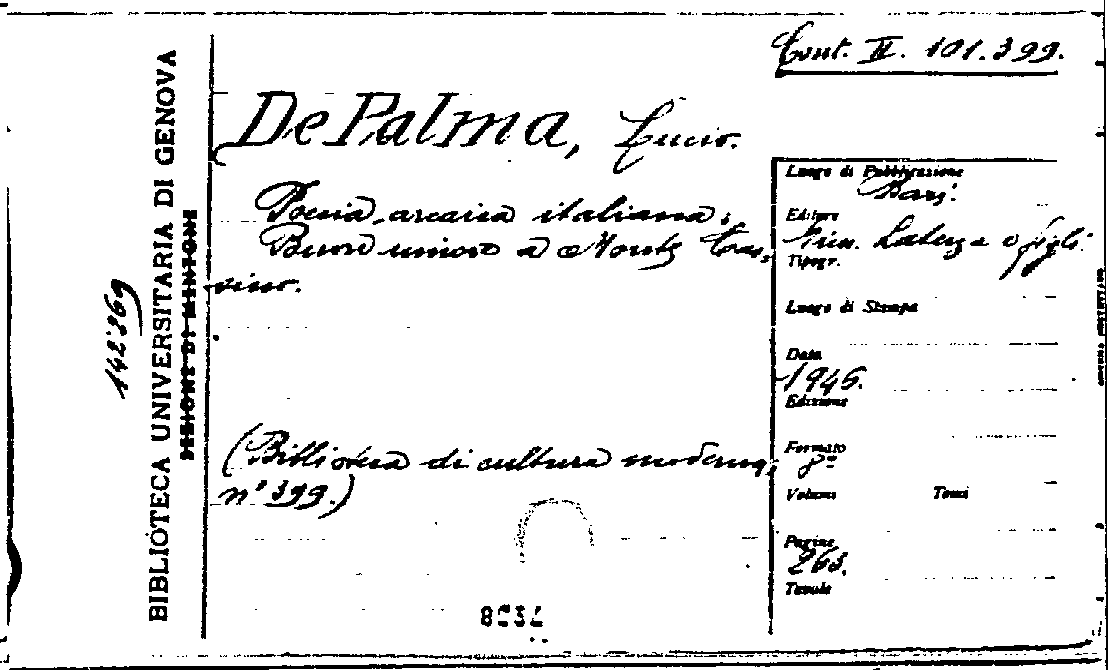 Cont. II. 101.399.
De Palma, Lucio.
Poesia arcaica italiana:
a Monte Cas-
sino.
(Biblioteca di cultura moderna,
n° 399.)
Luogo di Pubblicazione
Bari.
Editore
Gius. Laterza e figli.
Tipogr.
Luogo di Stampa
Data
1946.
Edizione
Formato
8°
Volumi Tomi
Pagine
263.
Tavole
BIBLIOTECA UNIVERSITARIA DI GENOVA
142269